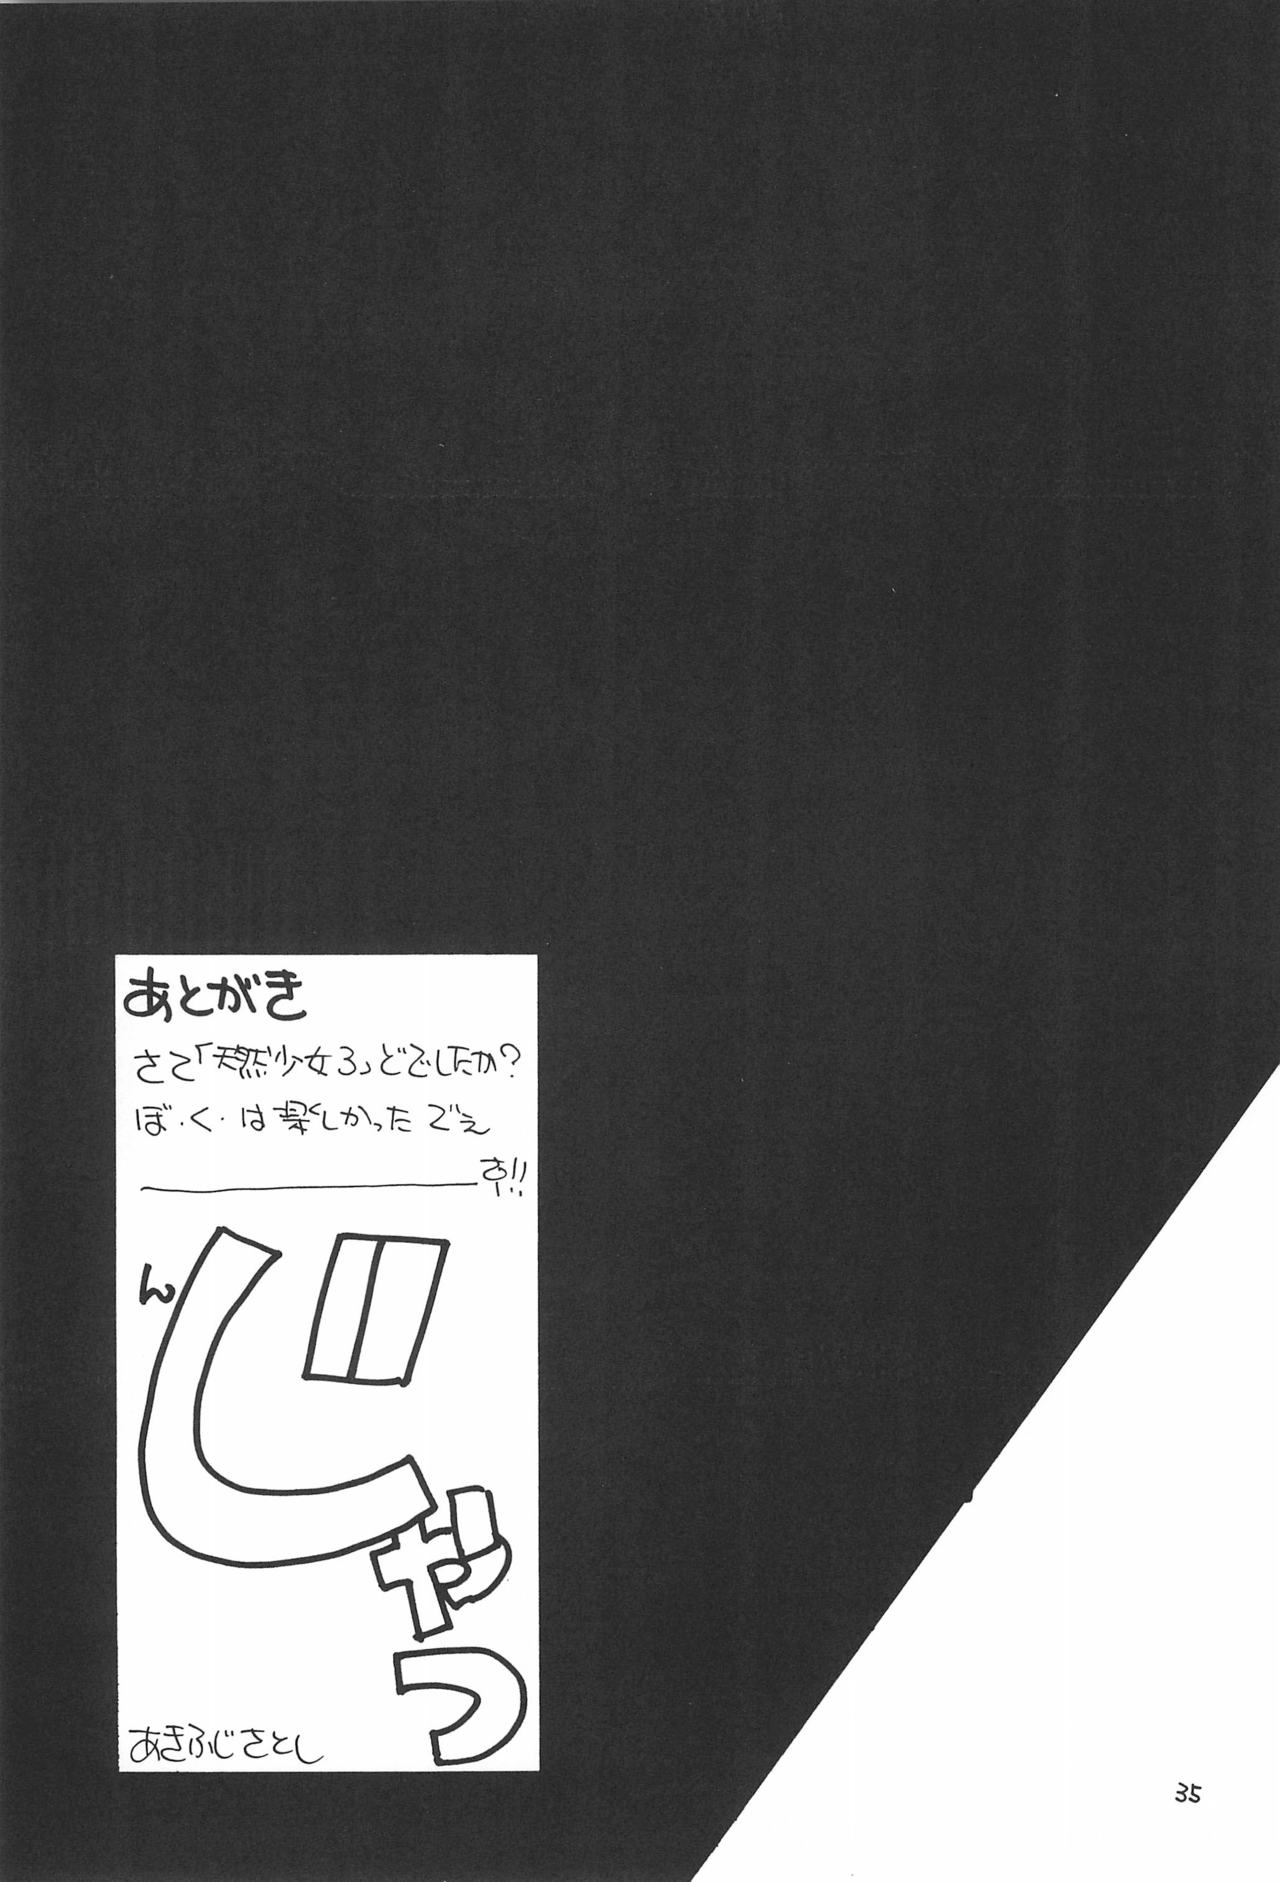 あとがき
さて「天然少女3」どでしたか?
ぼ・く・は楽しかったでえ
――――す!!
ん
じゃっ
あきふじさとし
35